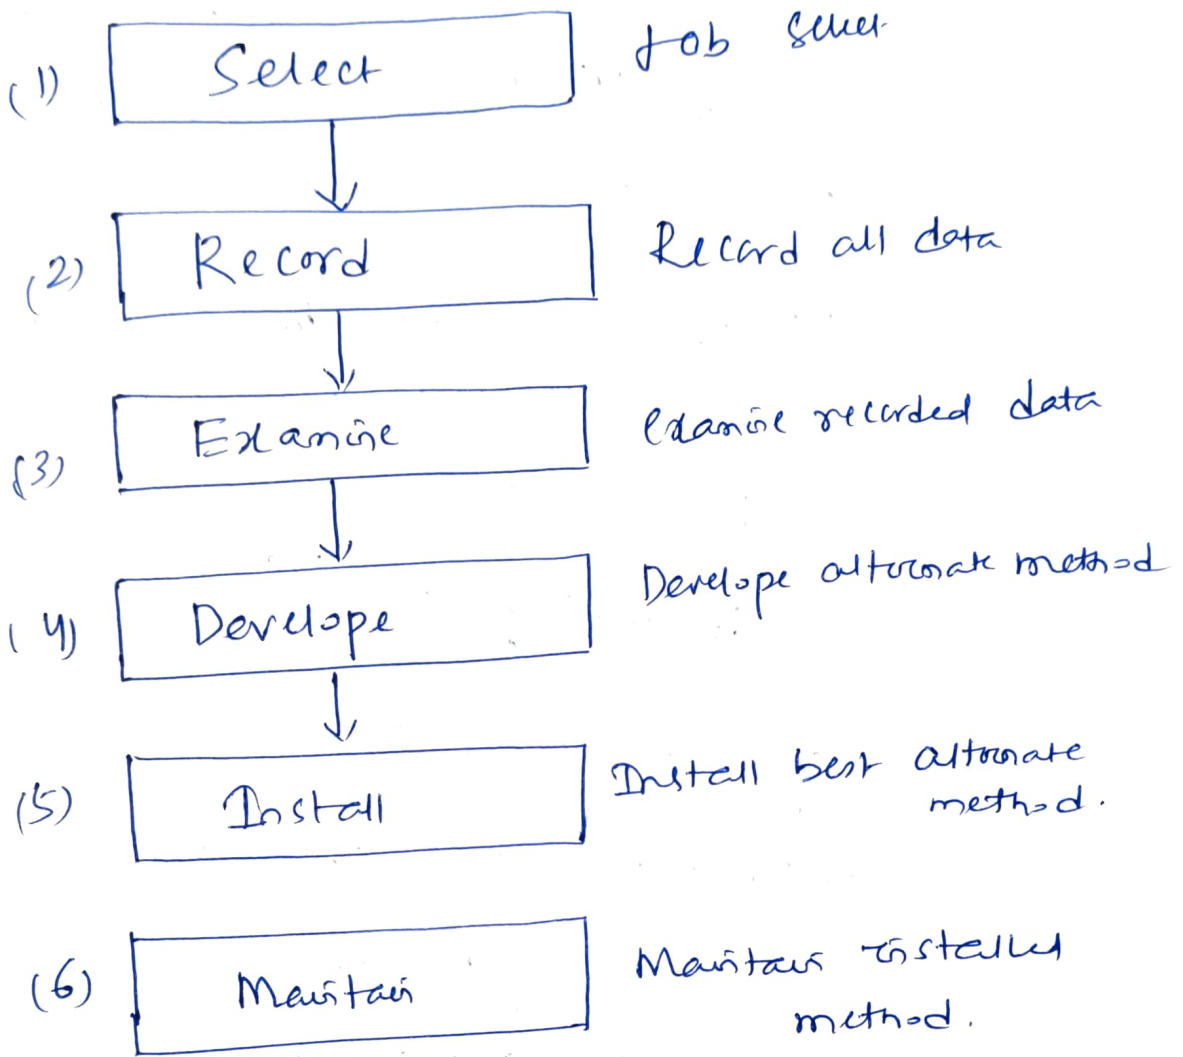 (1) Select Job
(2) Record Record all data
(3) Examine Examine recorded data
(4) Develope Develope alternate method
(5) Install Install best alternate
method.
(6) Maintain Maintain installed
method.